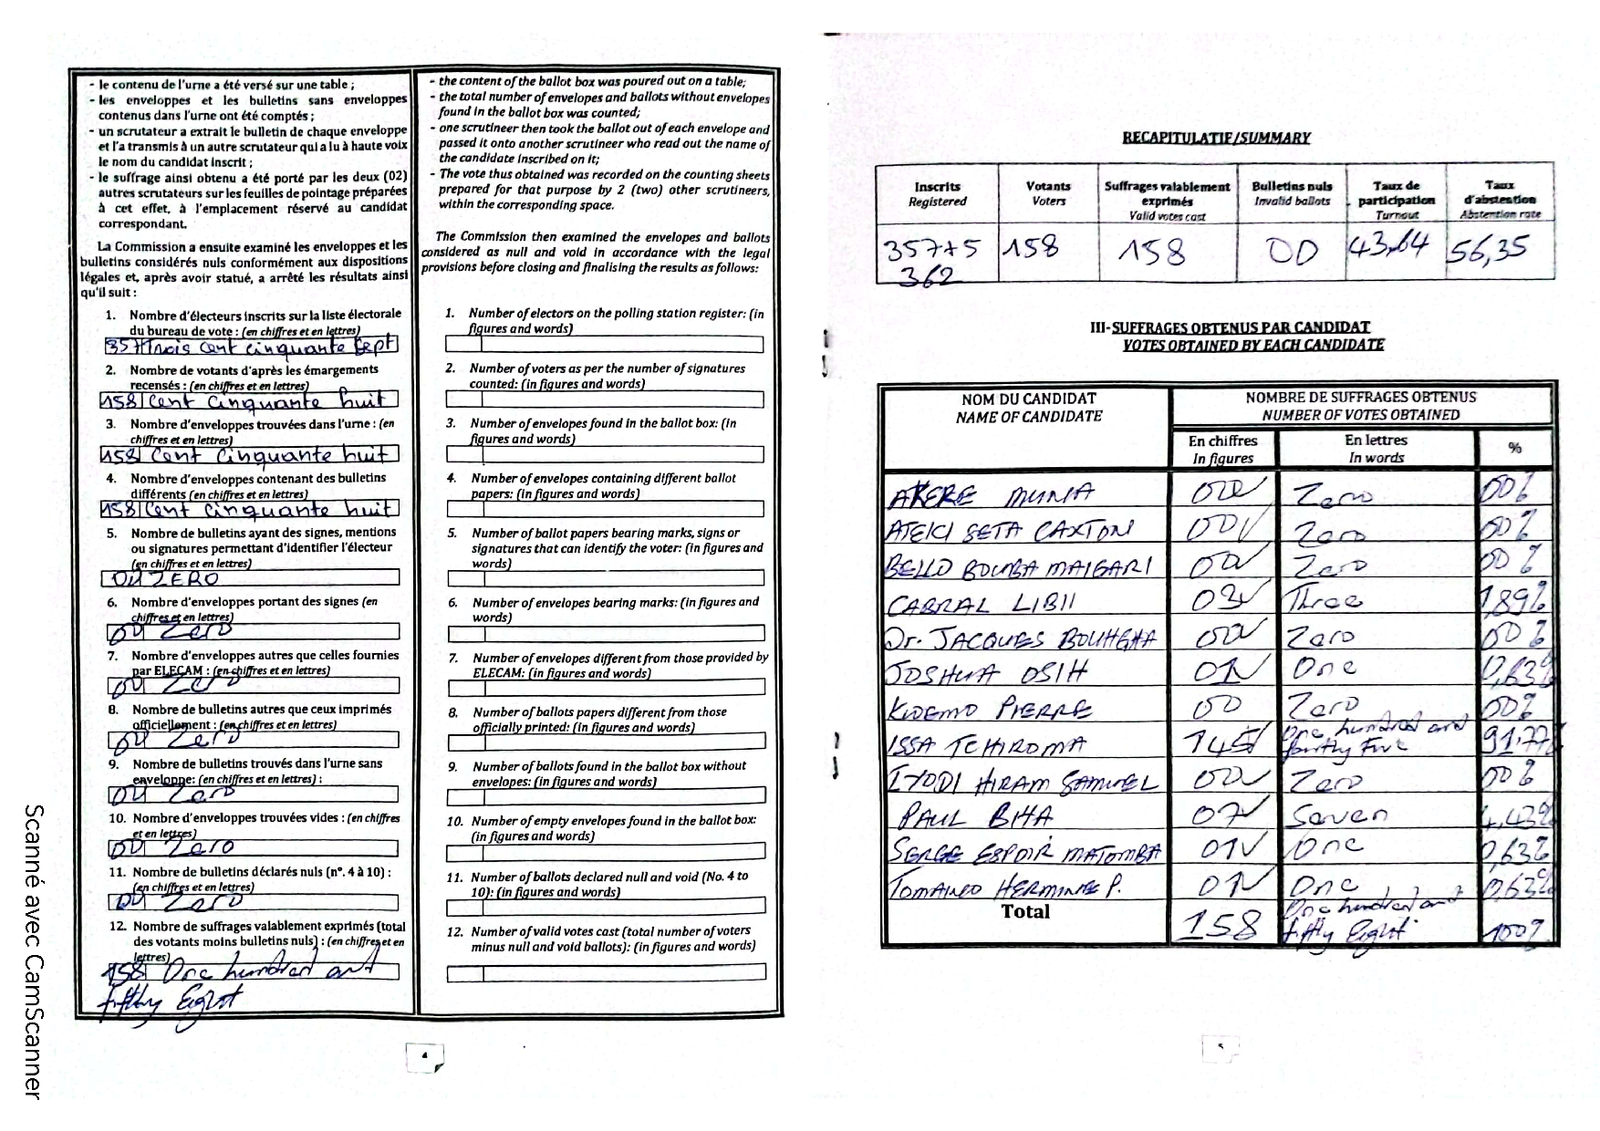 - le contenu de l'urne a été versé sur une table ;
- les enveloppes et les bulletins sans enveloppes
contenus dans l'urne ont été comptés ;
- un scrutateur a extrait le bulletin de chaque enveloppe
et l'a transmis à un autre scrutateur qui a lu à haute voix
le nom du candidat inscrit ;
- le suffrage ainsi obtenu a été porté par les deux (02)
autres scrutateurs sur les feuilles de pointage préparées
à cet effet, à l'emplacement réservé au candidat
correspondant.
La Commission a ensuite examiné les enveloppes et les
bulletins considérés nuls conformément aux dispositions
légales et, après avoir statué, a arrêté les résultats ainsi
qu'il suit :
1. Nombre d'électeurs inscrits sur la liste électorale
du bureau de vote : (en chiffres et en lettres)
357 Trois cent cinquante sept
2. Nombre de votants d'après les émargements
recensés : (en chiffres et en lettres)
158 Cent cinquante huit
3. Nombre d'enveloppes trouvées dans l'urne : (en
chiffres et en lettres)
158 Cent cinquante huit
4. Nombre d'enveloppes contenant des bulletins
différents (en chiffres et en lettres)
158 Cent cinquante huit
5. Nombre de bulletins ayant des signes, mentions
ou signatures permettant d'identifier l'électeur
(en chiffres et en lettres)
00 ZERO
6. Nombre d'enveloppes portant des signes (en
chiffres et en lettres)
00 Zero
7. Nombre d'enveloppes autres que celles fournies
par ELECAM : (en chiffres et en lettres)
00 Zero
8. Nombre de bulletins autres que ceux imprimés
officiellement : (en chiffres et en lettres)
00 Zero
9. Nombre de bulletins trouvés dans l'urne sans
enveloppe: (en chiffres et en lettres) :
00 Zero
10. Nombre d'enveloppes trouvées vides : (en chiffres
et en lettres)
00 Zero
11. Nombre de bulletins déclarés nuls (n°. 4 à 10) :
(en chiffres et en lettres)
00 Zero
12. Nombre de suffrages valablement exprimés (total
des votants moins bulletins nuls) : (en chiffres et en
lettres)
158 One hundred and
fifthy Eight
- the content of the ballot box was poured out on a table;
- the total number of envelopes and ballots without envelopes
found in the ballot box was counted;
- one scrutineer then took the ballot out of each envelope and
passed it onto another scrutineer who read out the name of
the candidate inscribed on it;
- The vote thus obtained was recorded on the counting sheets
prepared for that purpose by 2 (two) other scrutineers,
within the corresponding space.
The Commission then examined the envelopes and ballots
considered as null and void in accordance with the legal
provisions before closing and finalising the results as follows:
1. Number of electors on the polling station register: (in
figures and words)
2. Number of voters as per the number of signatures
counted: (in figures and words)
3. Number of envelopes found in the ballot box: (in
figures and words)
4. Number of envelopes containing different ballot
papers: (in figures and words)
5. Number of ballot papers bearing marks, signs or
signatures that can identify the voter: (in figures and
words)
6. Number of envelopes bearing marks: (in figures and
words)
7. Number of envelopes different from those provided by
ELECAM: (in figures and words)
8. Number of ballots papers different from those
officially printed: (in figures and words)
9. Number of ballots found in the ballot box without
envelopes: (in figures and words)
10. Number of empty envelopes found in the ballot box:
(in figures and words)
11. Number of ballots declared null and void (No. 4 to
10): (in figures and words)
12. Number of valid votes cast (total number of voters
minus null and void ballots): (in figures and words)
4
Scanné avec CamScanner
RECAPITULATIF/SUMMARY
Inscrits Registered | Votants Voters | Suffrages valablement exprimés Valid votes cast | Bulletins nuls Invalid ballots | Taux de participation Turnout | Taux d'abstention Abstention rate
357+5 158 158 00 43,64 56,35
362
III- SUFFRAGES OBTENUS PAR CANDIDAT
VOTES OBTAINED BY EACH CANDIDATE
NOM DU CANDIDAT NOMBRE DE SUFFRAGES OBTENUS
NAME OF CANDIDATE NUMBER OF VOTES OBTAINED
En chiffres En lettres %
In figures In words
AKERE MUNA 00 Zero 00%
ATEKI SETA CAXTON 00 Zero 00%
BELLO BOUBA MAIGARI 00 Zero 00%
CABRAL LIBII 03 Three 1,89%
Dr. JACQUES BOUHGHA 00 Zero 00%
JOSHUA OSIH 01 One 0,63%
KWEMO PIERRE 00 Zero 00%
ISSA TCHIROMA 145 One hundred and fourthy Five 91,77%
IYODI HIRAM SAMUEL 00 Zero 00%
PAUL BIYA 07 Seven 4,43%
SERGE ESPOIR MATOMBA 01 One 0,63%
TOMAINO HERMINE P. 01 One 0,63%
Total 158 One hundred and fifthy Eight 100%
5